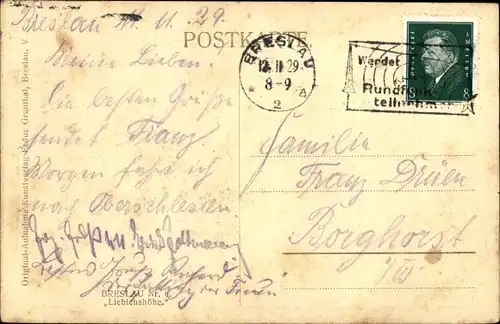 Breslau 11. 11. 29.
POSTKARTE
Meine Lieben.
Die besten Grüße
sendet Franz
Morgen fahre ich
nach Oberschlesien
BRESLAU Nr.
"Liebichshöhe."
Original-Aufnahme Kunstverlag Fedor Grunthal, Breslau. V.
BRESLAU
12.11.29
8-9
* 2 a
Werdet
Rundfunk-
teilnehmer
DEUTSCHES REICH
8 8
Familie
Franz Drüen
Borghorst
i/W